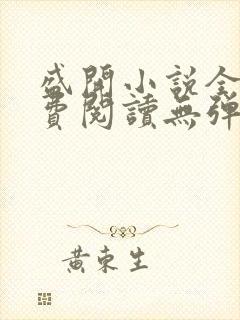 盛開小說全
費閱讀無彈
黃東生